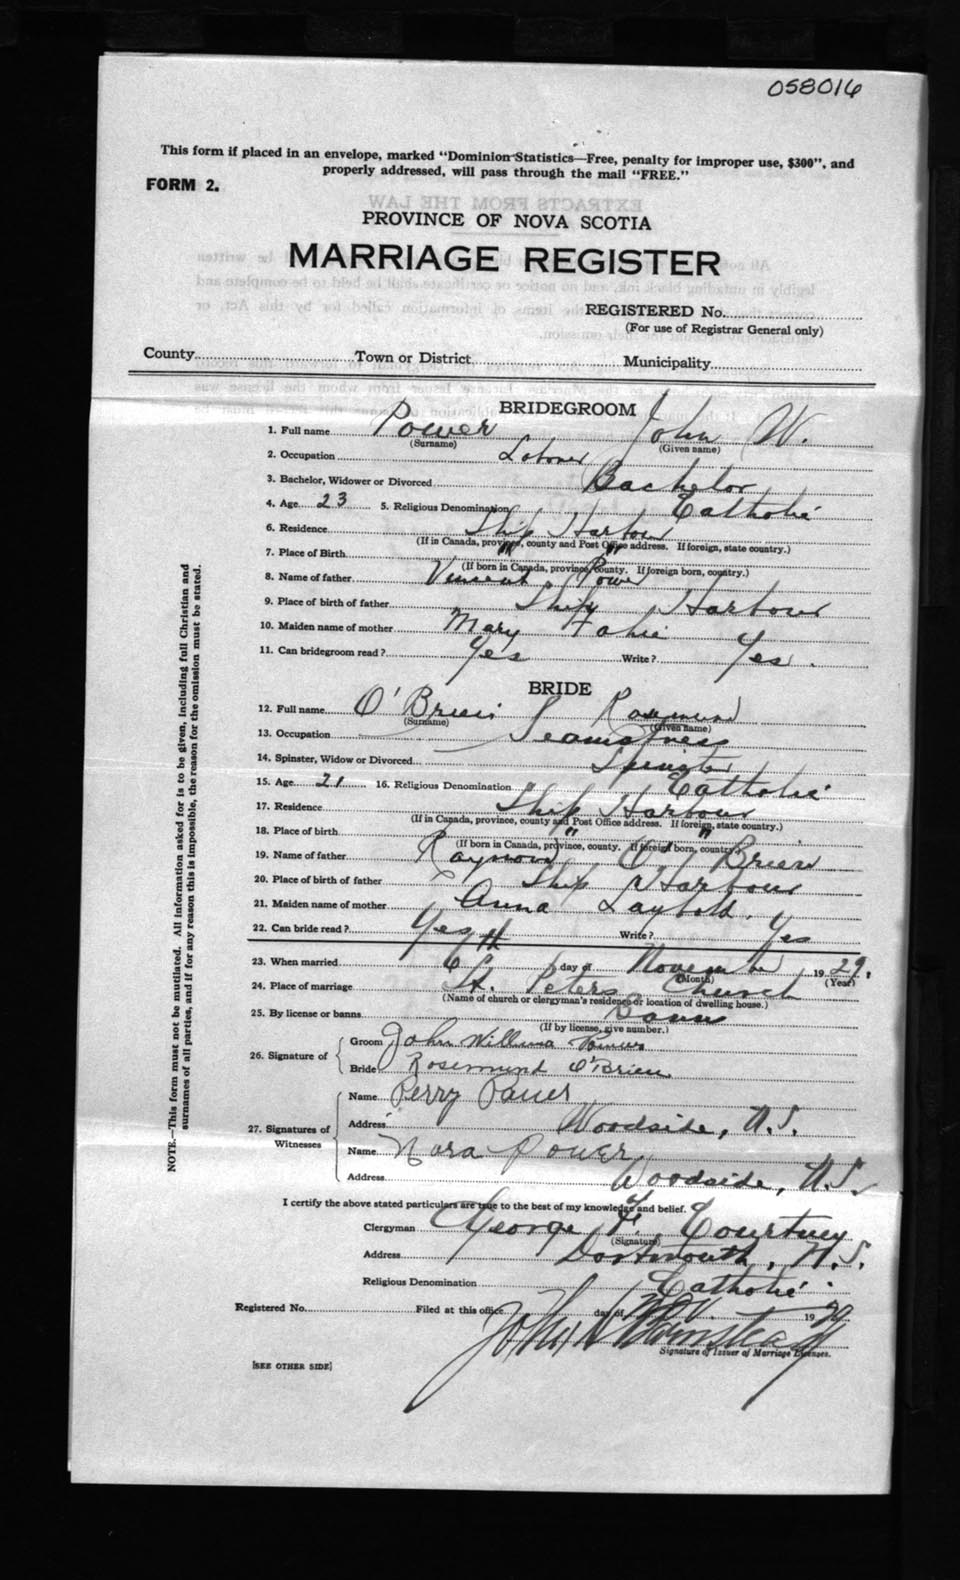 058016
This form if placed in an envelope, marked "Dominion-Statistics—Free, penalty for improper use, $300", and
properly addressed, will pass through the mail "FREE."
FORM 2.
PROVINCE OF NOVA SCOTIA
MARRIAGE REGISTER
REGISTERED No.
(For use of Registrar General only)
County Town or District Municipality
BRIDEGROOM
1. Full name Power John W.
(Surname) (Given name)
2. Occupation
3. Bachelor, Widower or Divorced Bachelor
4. Age 23 5. Religious Denomination Catholic
6. Residence Ship Harbour
(If in Canada, province, county and Post Office address. If foreign, state country.)
7. Place of Birth " "
(If born in Canada, province, county. If foreign born, country.)
8. Name of father Vincent Power
9. Place of birth of father Ship Harbour
10. Maiden name of mother Mary Fahie
11. Can bridegroom read? Yes Write? Yes.
BRIDE
12. Full name O'Brien Rosemund
(Surname) (Given name)
13. Occupation Seamstress
14. Spinster, Widow or Divorced Spinster
15. Age 21 16. Religious Denomination Catholic
17. Residence Ship Harbour
(If in Canada, province, county and Post Office address. If foreign, state country.)
18. Place of birth " "
(If born in Canada, province, county. If foreign born, country.)
19. Name of father Raymond O'Brien
20. Place of birth of father Ship Harbour
21. Maiden name of mother Anna Laybold.
22. Can bride read? Yes Write? Yes
23. When married 6th day of November 1929.
(Month) (Year)
24. Place of marriage St. Peters Church
(Name of church or clergyman's residence or location of dwelling house.)
25. By license or banns Banns
(If by license, give number.)
26. Signature of
Groom John William Power
Bride Rosemund O'Brien
27. Signatures of Witnesses
Name Perry Power
Address Woodside, N.S.
Name Nora Power
Address Woodside, N.S.
I certify the above stated particulars are true to the best of my knowledge and belief.
Clergyman George F. Courtney
(Signature)
Address Dartmouth, N.S.
Religious Denomination Catholic
Registered No. Filed at this office day of Nov. 1929
John
Signature of Issuer of Marriage Licenses.
[SEE OTHER SIDE]
NOTE.—This form must not be mutilated. All information asked for is to be given, including full Christian and
surnames of all parties, and if for any reason this is impossible, the reason for the omission must be stated.